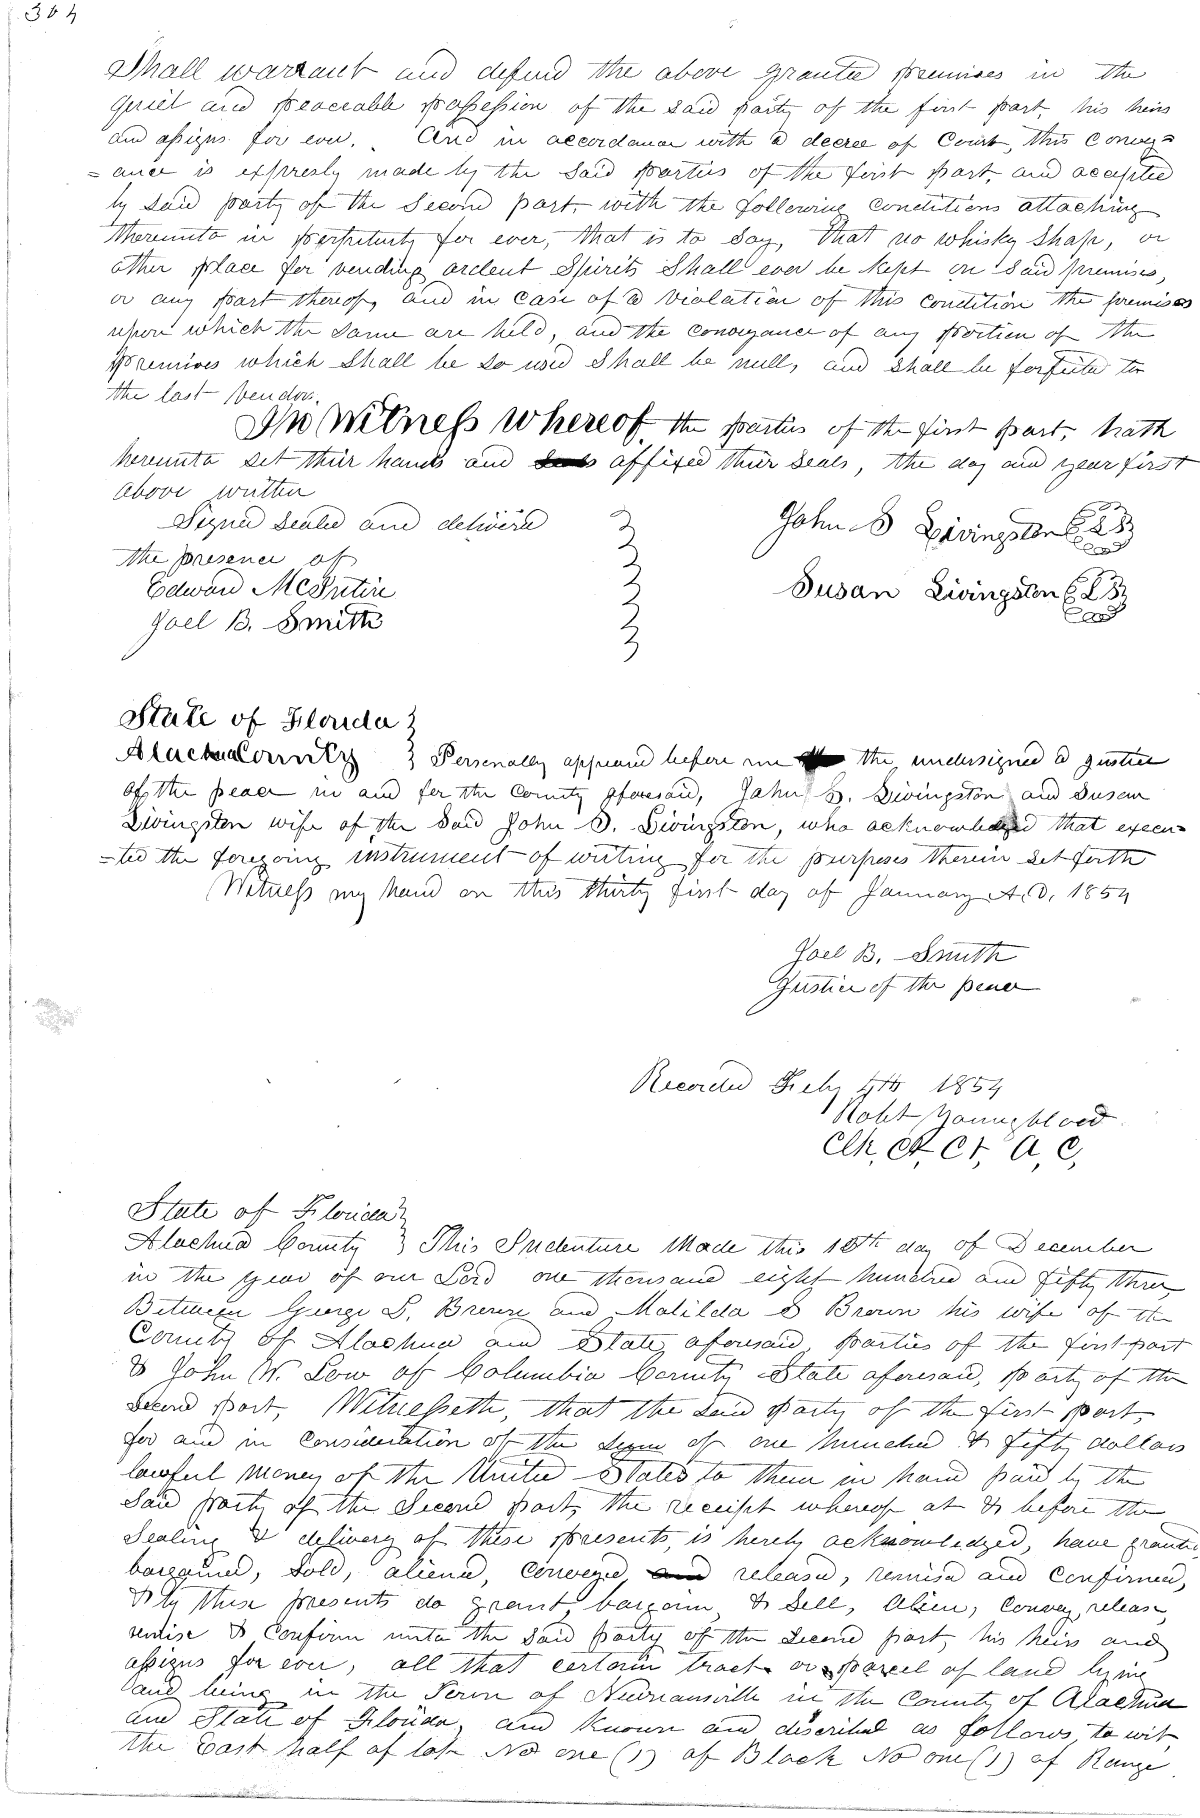 304
Shall warrant and defend the above granted premises in the
quiet and peaceable possession of the said party of the first part, his heirs
and assigns for ever. And in accordance with a decree of Court, this convey=
=ance is expresly made by the said parties of the first part, and accepted
by said party of the Second part, with the following conditions attaching
thereunto in perpetuity for ever, that is to say, that no whisky shop, or
other place for vending ardent Spirits Shall ever be kept on said premises,
or any part thereof, and in case of a violation of this condition the premises
upon which the same are held, and the conveyance of any portion of the
premises which shall be so used shall be null, and shall be forfeited to
the last vendor.
In Witness Whereof, the parties of the first part, hath
hereunto set their hands and affixed their seals, the day and year first
above written
Signed sealed and delivered
the presence of
Edward McIntire
Joel B. Smith
John S Livingston LS
Susan Livingston LS
State of Florida
Alachua County Personally appeared before me the undersigned a justice
of the peace in and for the County aforesaid, John S. Livingston and Susan
Livingston wife of the Said John S. Livingston, who acknowledged that execu=
=ted the foregoing instrument of writing for the purposes therein set forth
Witness my hand on this thirty first day of January A.D. 1854
Joel B. Smith
Justice of the peace
Recorded Feby 4th 1854
Robt Youngblood
Clk, Ct, Ct, A, C,
State of Florida
Alachua County This Indenture Made this 18th day of December
in the year of our Lord one thousand eight hundred and fifty three,
Between George L. Brown and Matilda S Brown his wife of the
County of Alachua and State aforesaid, parties of the first part
& John W. Low of Columbia County State aforesaid, party of the
second part, Witnesseth, that the said party of the first part,
for and in consideration of the sum of one hundred & fifty dollars
lawful money of the United States to them in hand paid by the
said party of the Second part, the receipt whereof at & before the
Sealing & delivery of these presents, is hereby acknowledged, have granted
bargained, sold, aliened, conveyed, and released, remised and confirmed,
& by these presents do grant, bargain, & Sell, Alien, convey, release,
remise & confirm unto the said party of the second part, his heirs and
assigns for ever, all that certain tract or parcel of land lying
and being in the Town of Newnansville in the County of Alachua
and State of Florida, and known and described as follows, to wit,
the East half of lot No one (1) of Block No one (1) of Range